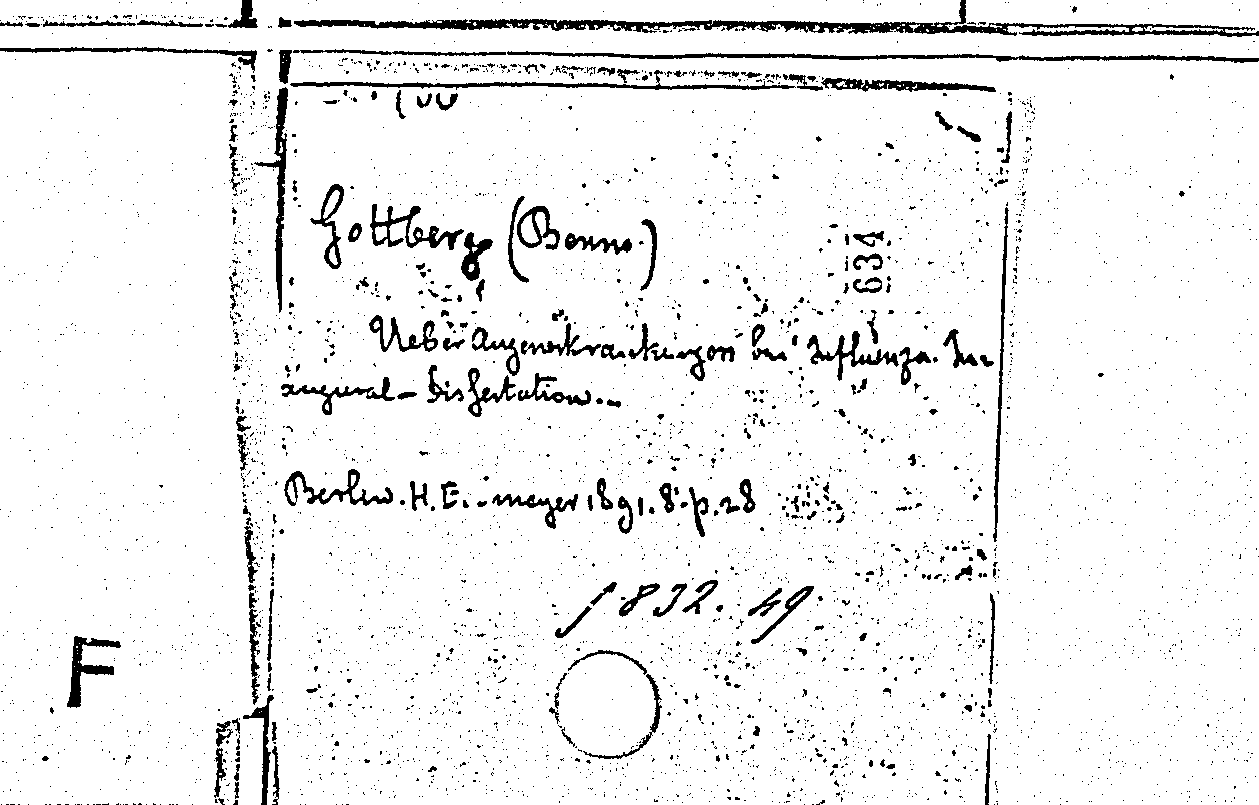 Gottberg (Benno.)
634
Ueber Augenerkrankungen bei Influenza. In-
augural-Dissertation.-
Berlin. H. E. meyer 1891. 8° p. 28
1832. 49
F